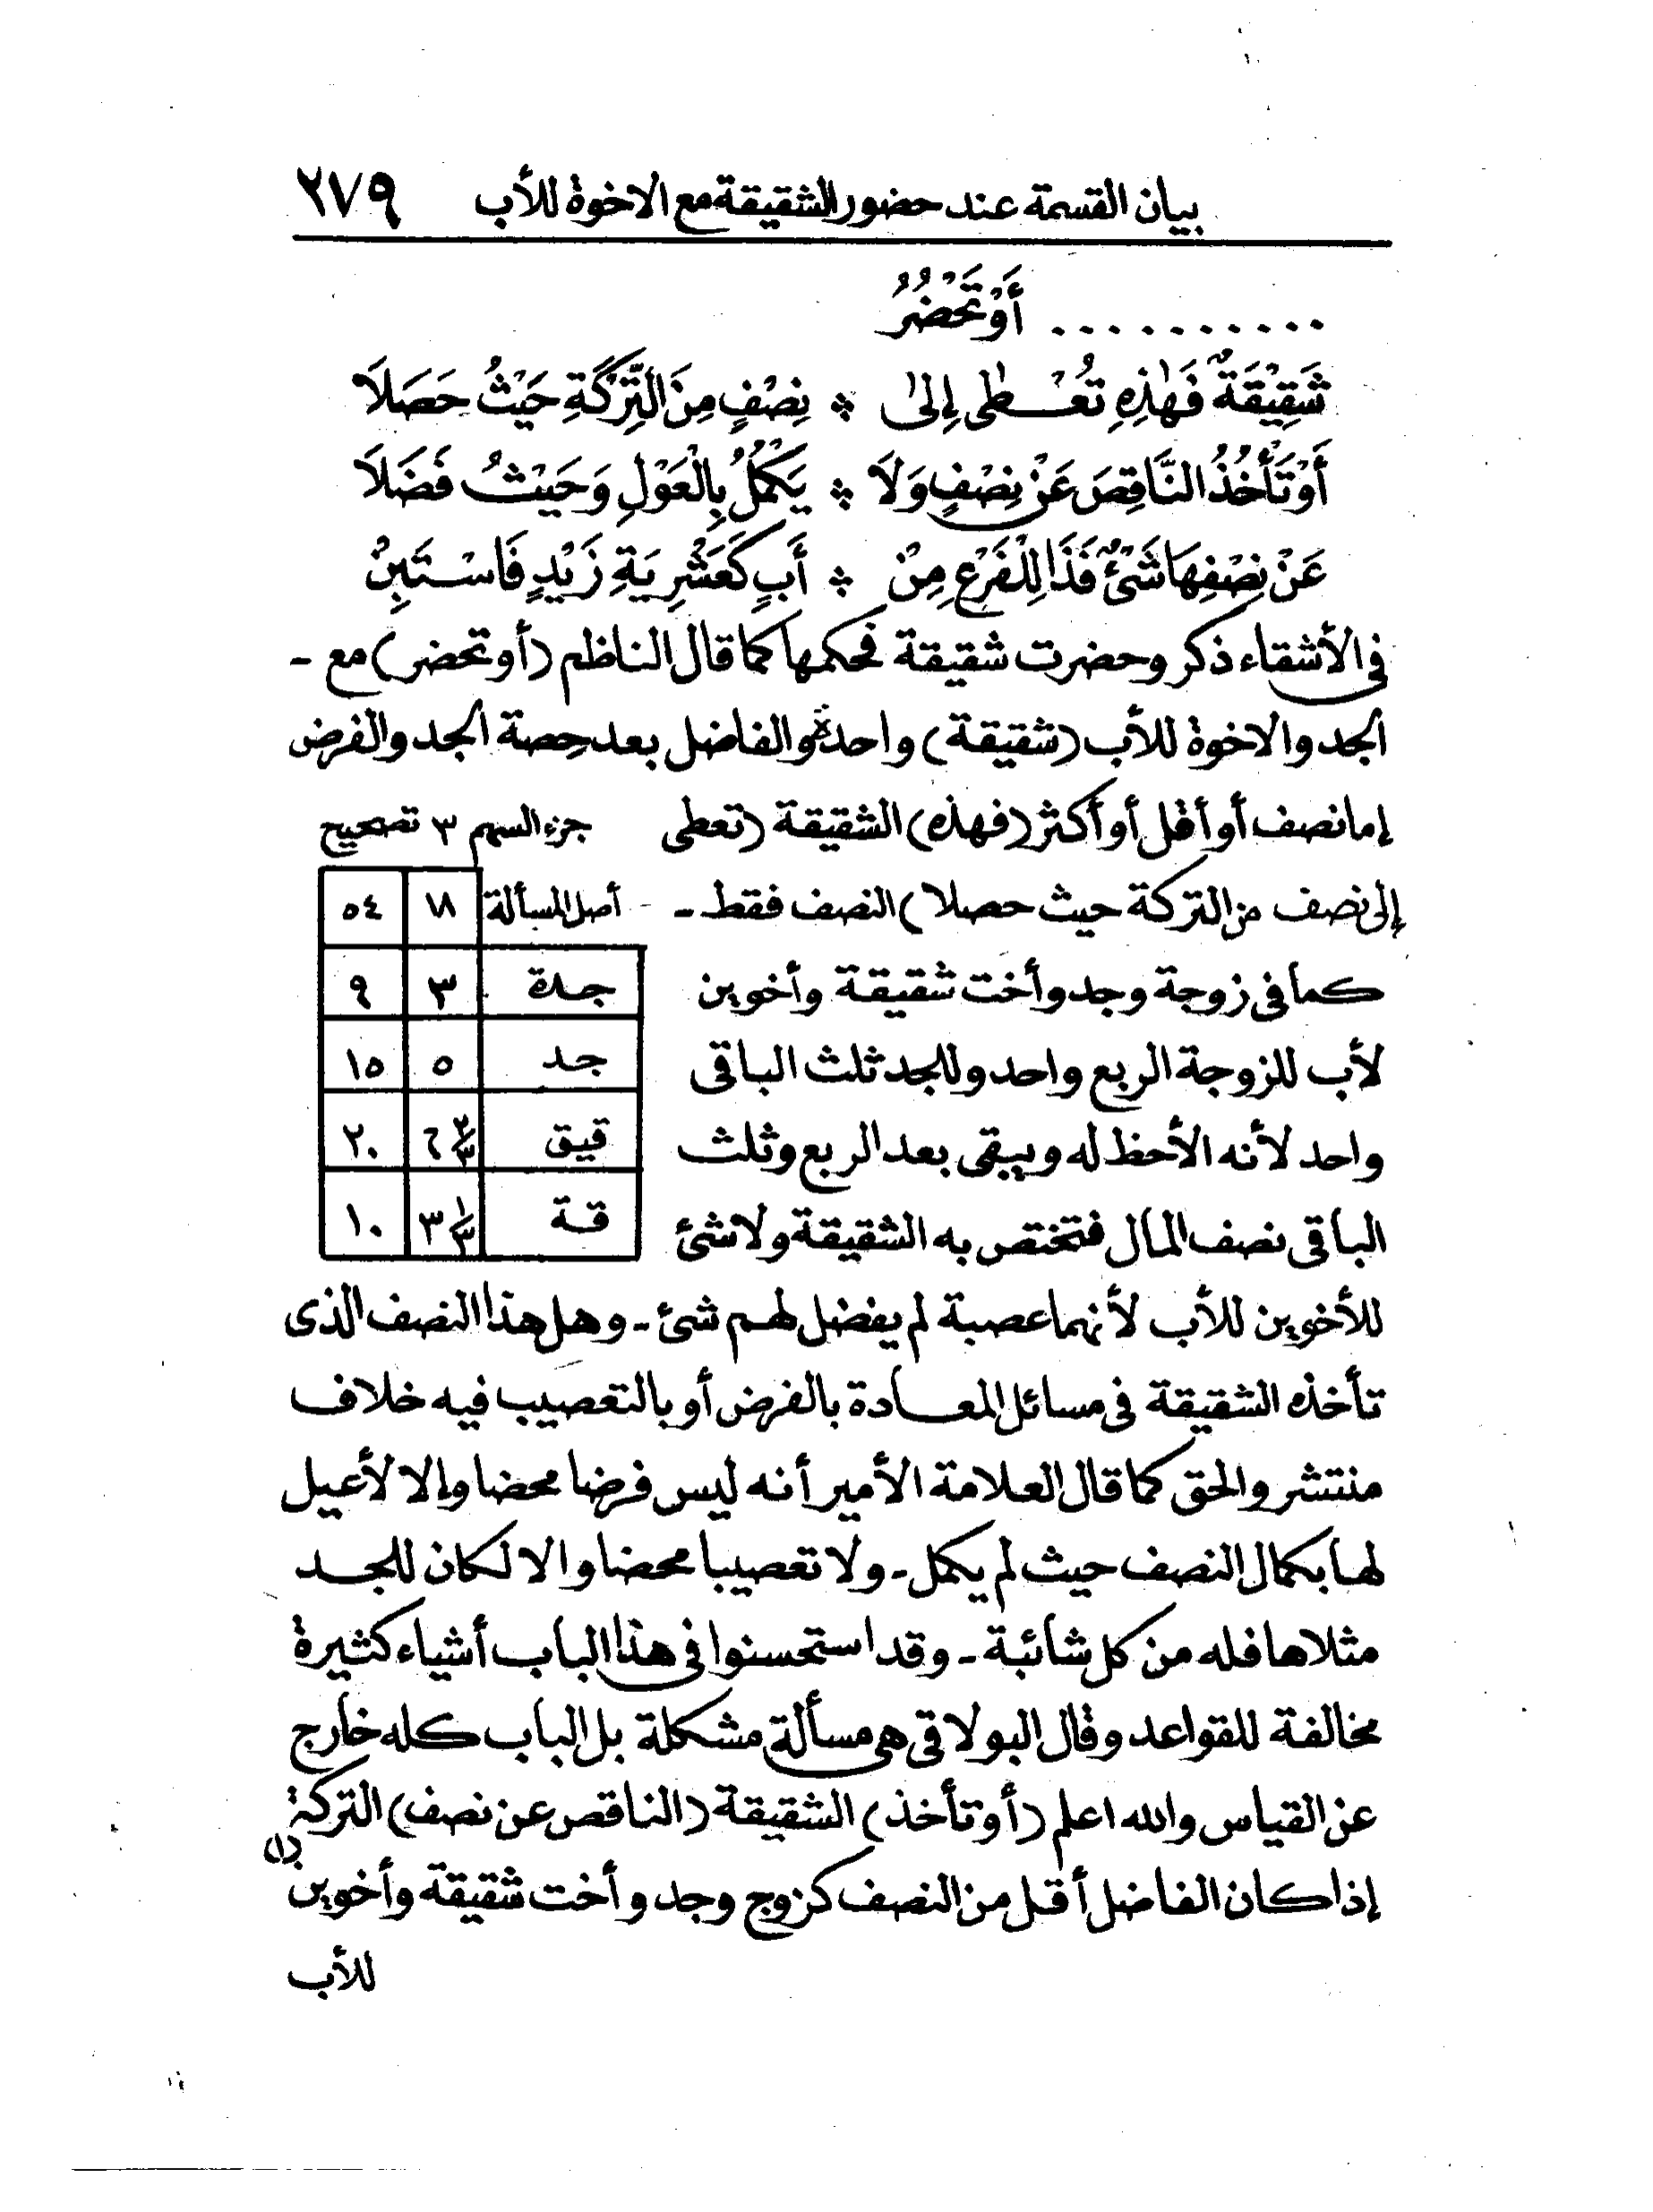 بيان القسمة عند حضور الشقيقة مع الاخوة للأب ٢٧٩
.......... أَوْ تَحْضُرُ
شَقِيْقَةٌ فَهٰذِهِ تُعْطٰى إِلىٰ * نِصْفٍ مِنَ التِّرْكَةِ حَيْثُ حَصَلَا
أَوْ تَأْخُذُ النَّاقِصَ عَنْ نِصْفٍ وَلَا * يَكْمُلُ بِالْعَوْلِ وَحَيْثُ فَضَلَا
عَنْ نِصْفِهَا شَئٌ فَذَا لِلْفَرْعِ مِنْ * أَبٍ كَعَشْرِيَةِ زَيْدٍ فَاسْتَبِنْ
فى الأشقاء ذكر وحضرت شقيقة فحكمها كما قال الناظم (أو تحضر) مع -
الجد والاخوة للأب (شقيقة) واحدة والفاضل بعد حصة الجد والفرض
إما نصف أو أقل أو أكثر (فهذه) الشقيقة (تعطى
جزء السهم ٣ تصحيح
إلى نصف من التركة حيث حصلا) النصف فقط -
أصل المسألة ١٨ ٥٤
كما فى زوجة وجد وأخت شقيقة وأخوين
جدة ٣ ٩
لأب للزوجة الربع واحد وللجد ثلث الباقى
جد ٥ ١٥
واحد لأنه الأحظ له ويبقى بعد الربع وثلث
قيق ٦ ٢/٣ ٢٠
الباقى نصف المال فتختص به الشقيقة ولا شئ
قة ٣ ١/٣ ١٠
للأخوين للأب لأنهما عصبة لم يفضل لهم شئ - وهل هذا النصف الذى
تأخذه الشقيقة فى مسائل المعادة بالفرض أو بالتعصيب فيه خلاف
منتشر والحق كما قال العلامة الأمير أنه ليس فرضا محضا وإلا لأعيل
لها بكمال النصف حيث لم يكمل - ولا تعصيبا محضا والا لكان للجد
مثلاها فله من كل شائبة - وقد استحسنوا فى هذا الباب أشياء كثيرة
مخالفة للقواعد وقال البولاقى هى مسألة مشكلة بل الباب كله خارج
عن القياس والله اعلم (أو تأخذ) الشقيقة (الناقص عن نصف) التركة
إذا كان الفاضل أقل من النصف كزوج وجد وأخت شقيقة وأخوين (١)
للأب